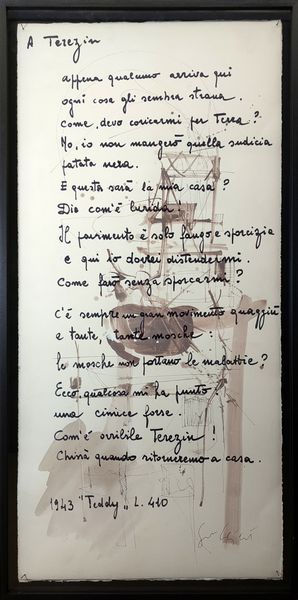 A Terezin
appena qualcuno arriva qui
ogni cosa gli sembra strana.
come, devo coricarmi per Terra?
No, io non mangerò quella sudicia
patata nera.
E questa sarà la mia casa?
Dio com'è lurida!
Il pavimento è solo fango e sporcizia
e qui io dovrei distendermi.
Come farò senza sporcarmi?
C'è sempre un gran movimento quaggiù
e tante, tante mosche:
le mosche non portano le malattie?
Ecco, qualcosa mi ha punto
una cimice forse.
Com'è orribile Terezin!
Chissà quando ritorneremo a casa.
1943 "Teddy" L. 410